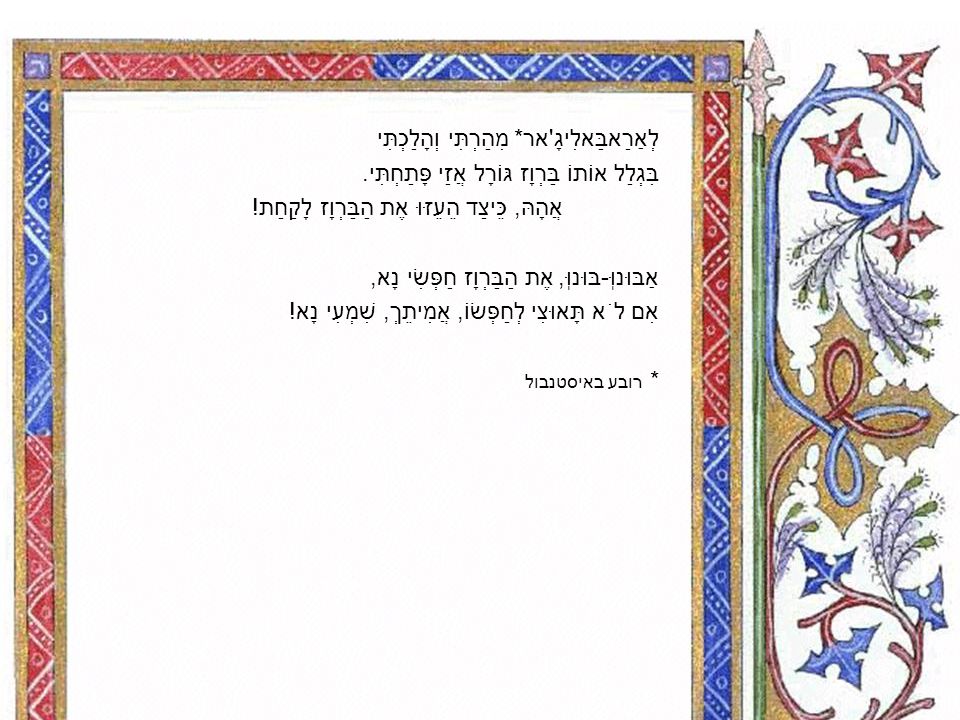 לְאַרַאבַּאלִיגָ'אר* מִהַרְתִּי וְהָלַכְתִּי
בִּגְלַל אוֹתוֹ בַּרְוָז גּוֹרָל אֲזַי פָּתַחְתִּי.
אֲהָהּ, כֵּיצַד הֵעֵזּוּ אֶת הַבַּרְוָז לָקַחַת!
אַבּוּנוְּ-בּוּנוְּ, אֶת הַבַּרְוָז חַפְּשִׂי נָא,
אִם לֹא תָּאוּצִי לְחַפְּשׂוֹ, אֲמִיתֵךְ, שִׁמְעִי נָא!
* רובע באיסטנבול